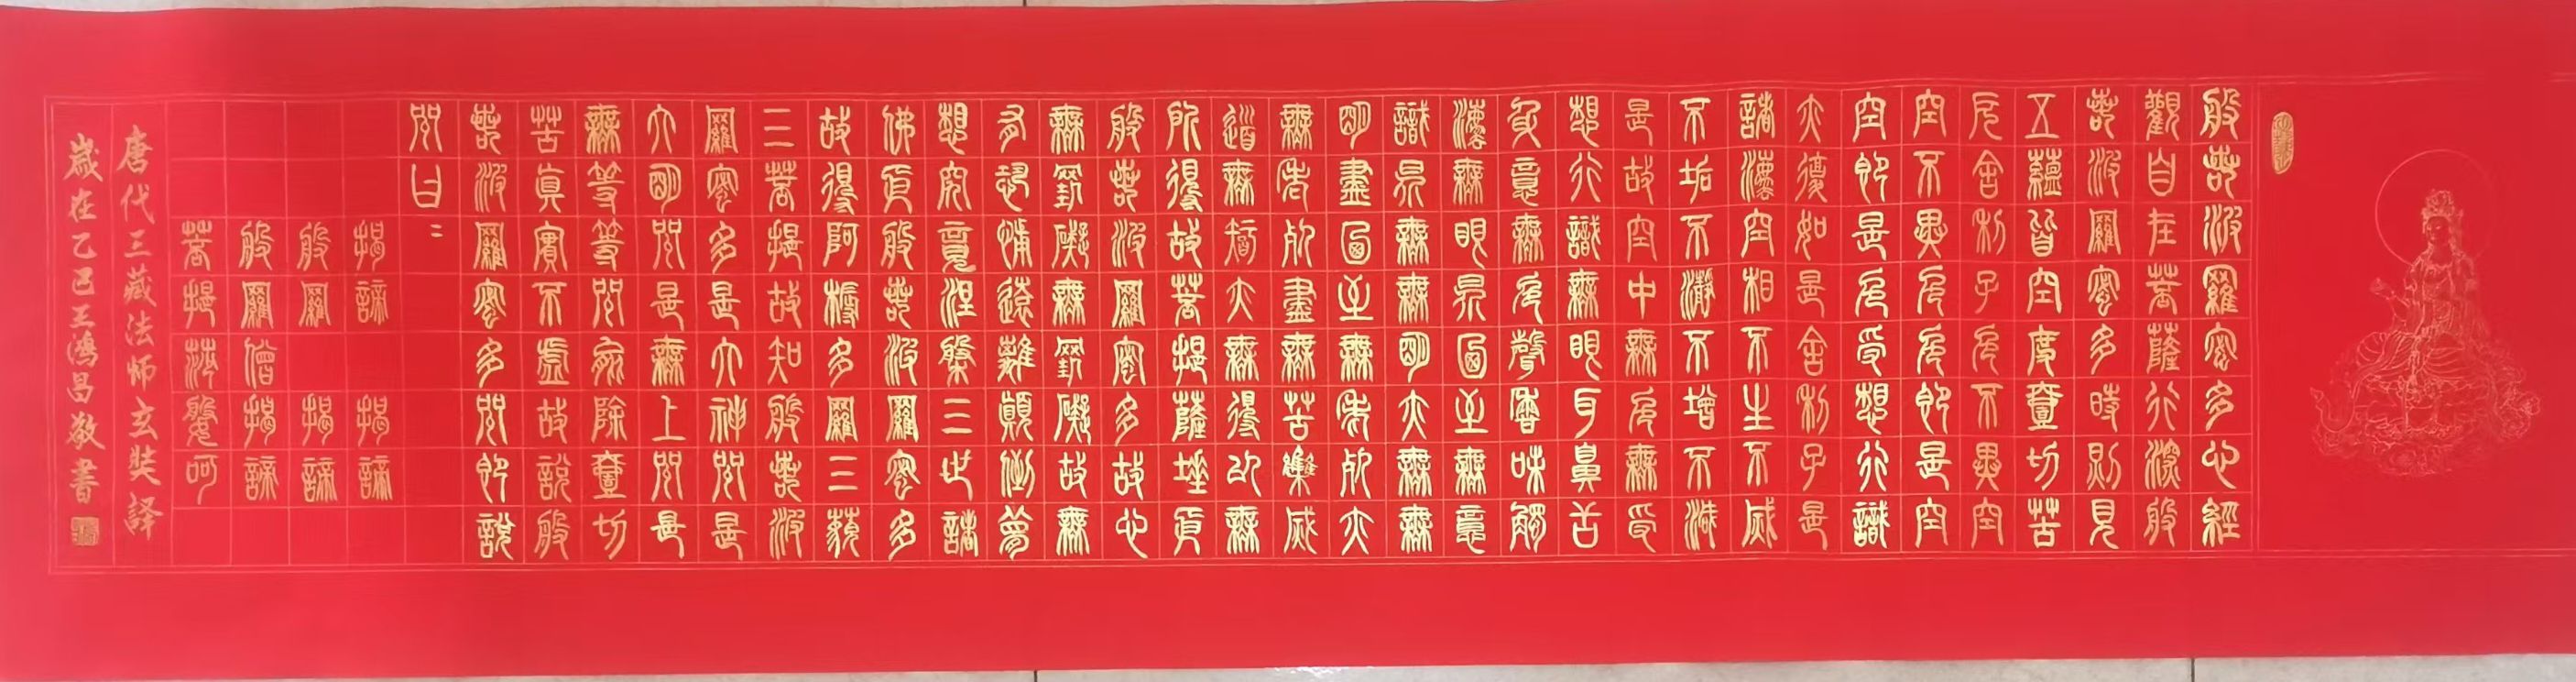 般若波羅蜜多心經
觀自在菩薩行深般
若波羅蜜多時照見
五蘊皆空度壹切苦
厄舍利子色不異空
空不異色色即是空
空即是色受想行識
亦復如是舍利子是
諸法空相不生不滅
不垢不淨不增不減
是故空中無色無受
想行識無眼耳鼻舌
身意無色聲香味觸
法無眼界乃至無意
識界無無明亦無無
明盡乃至無老死亦
無老死盡無苦集滅
道無智亦無得以無
所得故菩提薩埵依
般若波羅蜜多故心
無罣礙無罣礙故無
有恐怖遠離顛倒夢
想究竟涅槃三世諸
佛依般若波羅蜜多
故得阿耨多羅三藐
三菩提故知般若波
羅蜜多是大神咒是
大明咒是無上咒是
無等等咒能除壹切
苦真實不虛故說般
若波羅蜜多咒即說
咒曰
揭諦 揭諦
般羅 揭諦
般羅僧揭諦
菩提莎婆呵
唐代三藏法师玄奘譯
歲在乙巳王鴻昌敬書